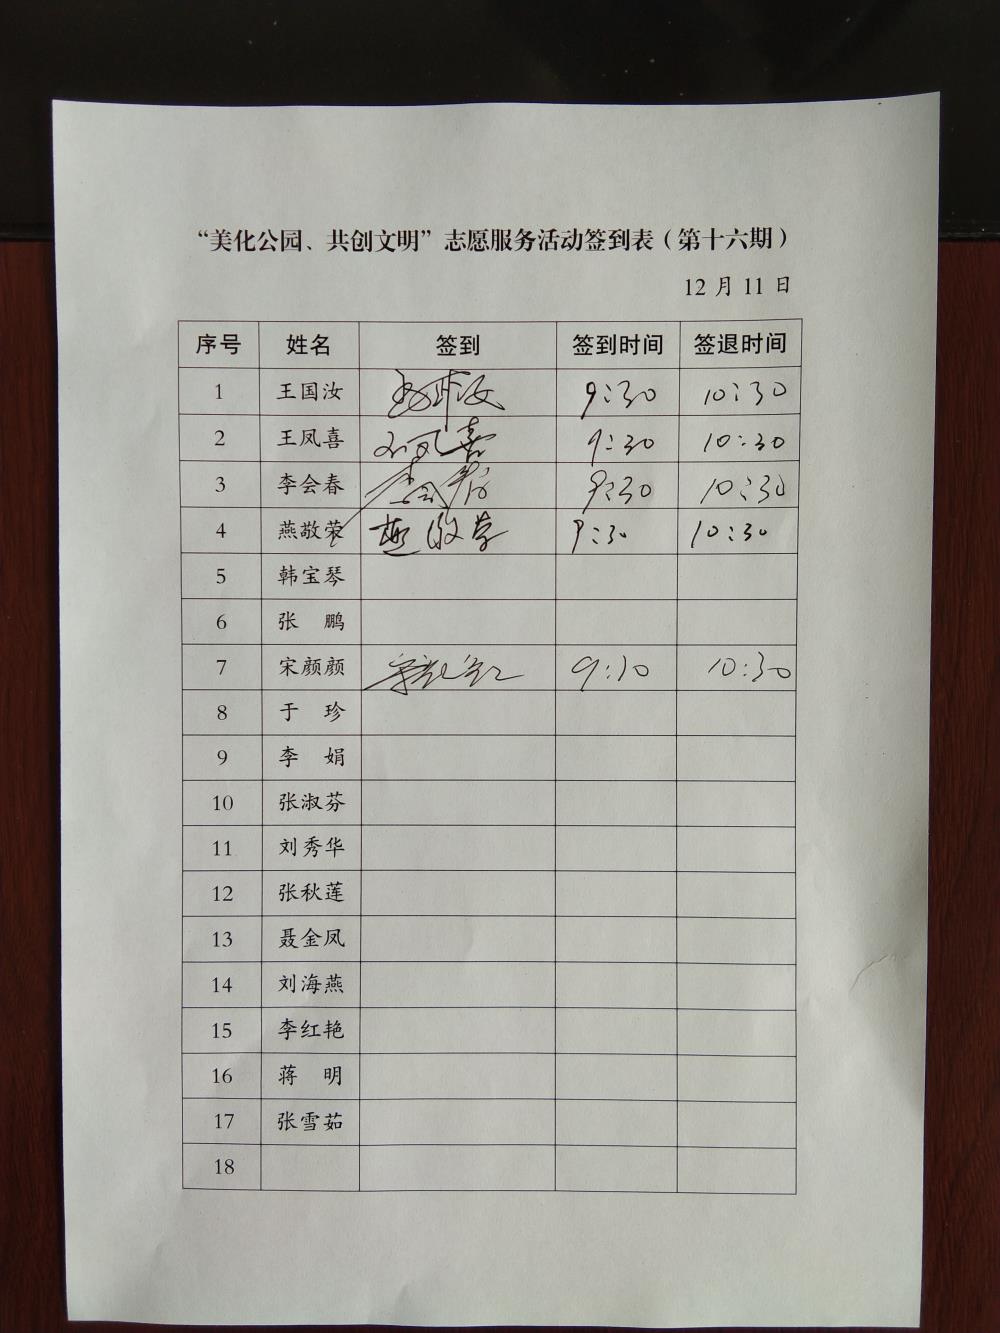 “美化公园、共创文明”志愿服务活动签到表（第十六期）
12月11日
序号 姓名 签到 签到时间 签退时间
1 王国汝 王国汝 9:30 10:30
2 王凤喜 王凤喜 9:30 10:30
3 李会春 李会春 9:30 10:30
4 燕敬荣 燕敬荣 9:30 10:30
5 韩宝琴
6 张 鹏
7 宋颜颜 宋颜颜 9:30 10:30
8 于 珍
9 李 娟
10 张淑芬
11 刘秀华
12 张秋莲
13 聂金凤
14 刘海燕
15 李红艳
16 蒋 明
17 张雪茹
18